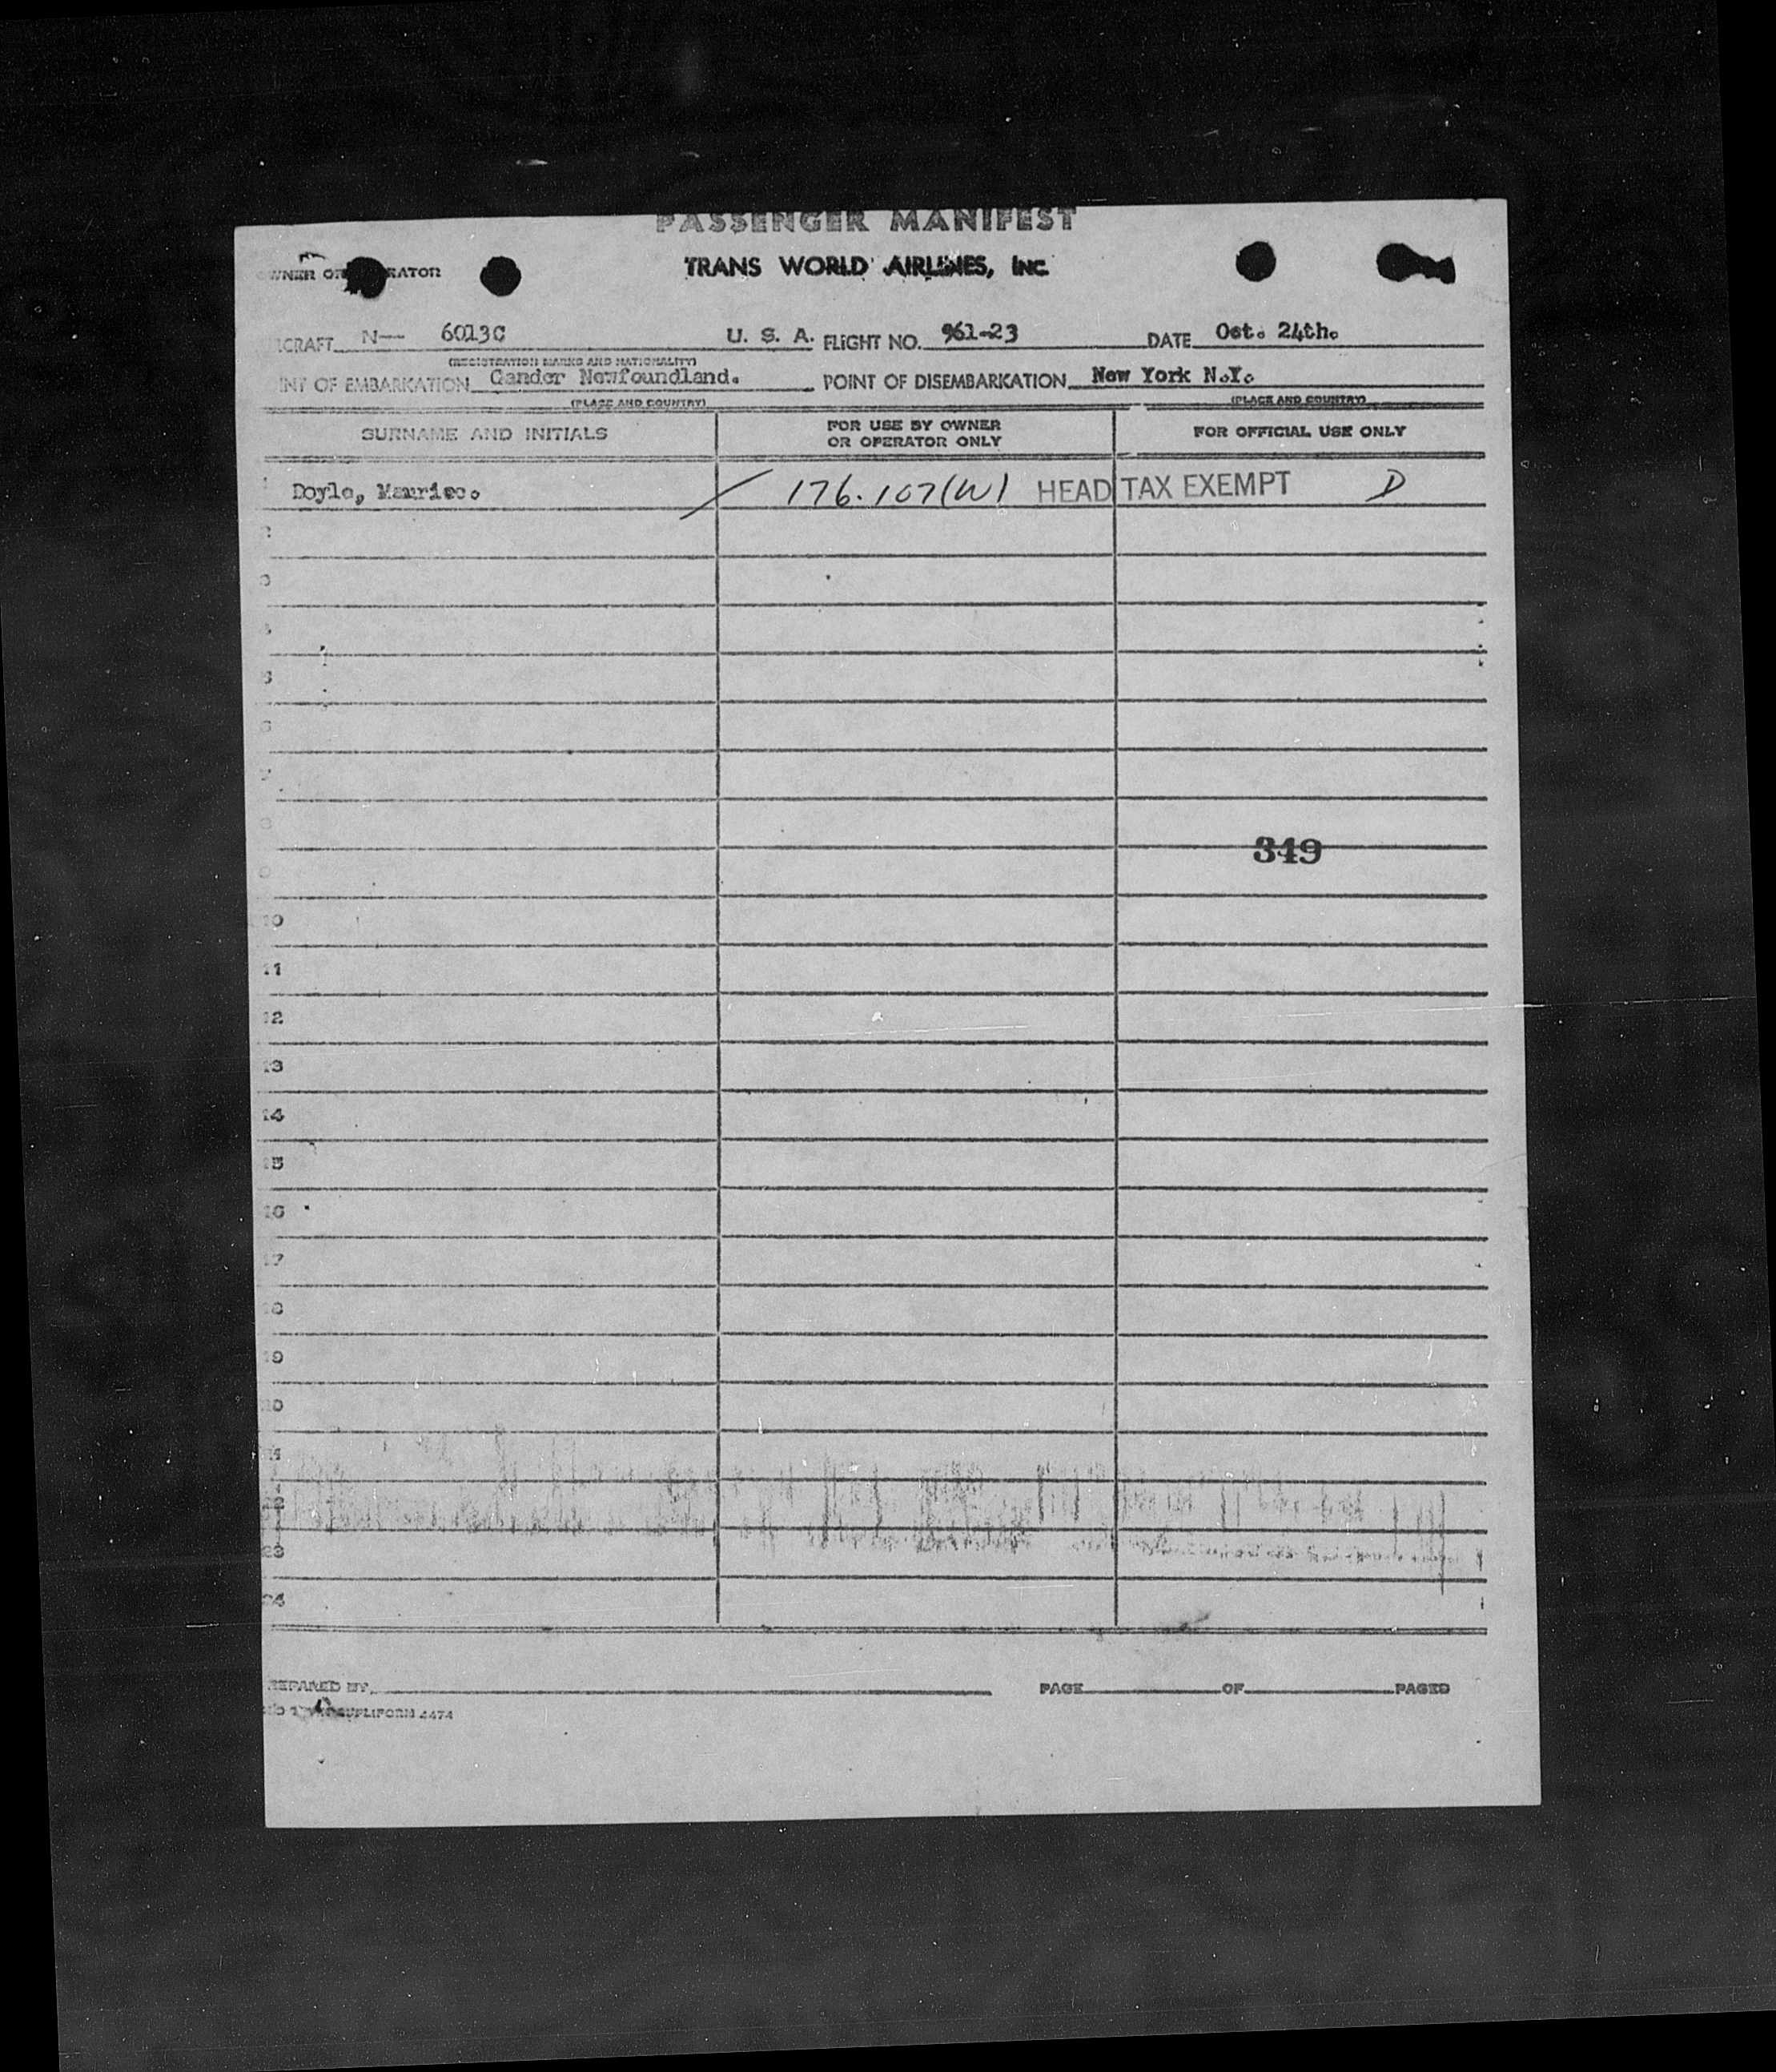 PASSENGER MANIFEST
OWNER OR OPERATOR TRANS WORLD AIRLINES, INC.
AIRCRAFT N-- 6013C U. S. A. FLIGHT NO. 961-23 DATE Oct. 24th.
(REGISTRATION MARKS AND NATIONALITY)
POINT OF EMBARKATION Gander Newfoundland. POINT OF DISEMBARKATION New York N.Y.
(PLACE AND COUNTRY) (PLACE AND COUNTRY)
SURNAME AND INITIALS FOR USE BY OWNER OR OPERATOR ONLY FOR OFFICIAL USE ONLY
1 Doyle, Maurice. 176.107(W) HEAD TAX EXEMPT D
2
3
4
5
6
7
8
349
9
10
11
12
13
14
15
16
17
18
19
20
21
22
23
24
PREPARED BY PAGE OF PAGES